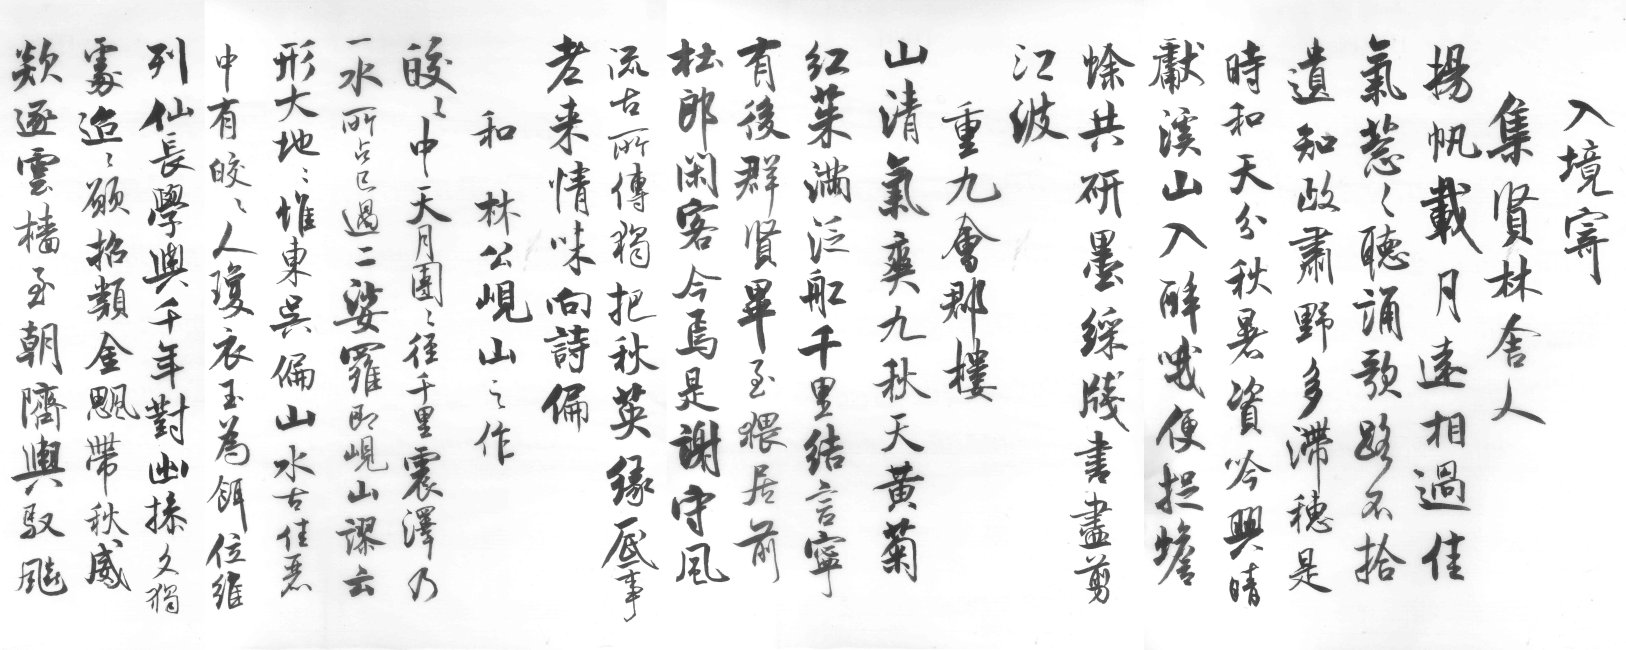 入境寄
集賢林舍人
揚帆載月遠相過佳
氣葱々聽誦歌路不拾
遺知政肅野多滯穗是
時和天分秋暑資吟興晴
獻溪山入醉哦便捉蟾
蜍共研墨綵牋書盡剪
江波
重九會郡樓
山清氣爽九秋天黃菊
紅茱滿泛船千里結言寧
有後群賢畢至猥居前
杜郎閑客今焉是謝守風
流古所傳獨把秋英緣底事
老来情味向詩偏
和林公峴山之作
皎々中天月團々徑千里震澤乃
一水所占已過二娑羅即峴山謬云
形大地々惟東吳偏山水古佳麗
中有皎々人瓊衣玉為餌位維
列仙長學與千年對幽操久獨
處迢々願招類金颸帶秋威
欻逐雲檣至朝隮輿馭飈